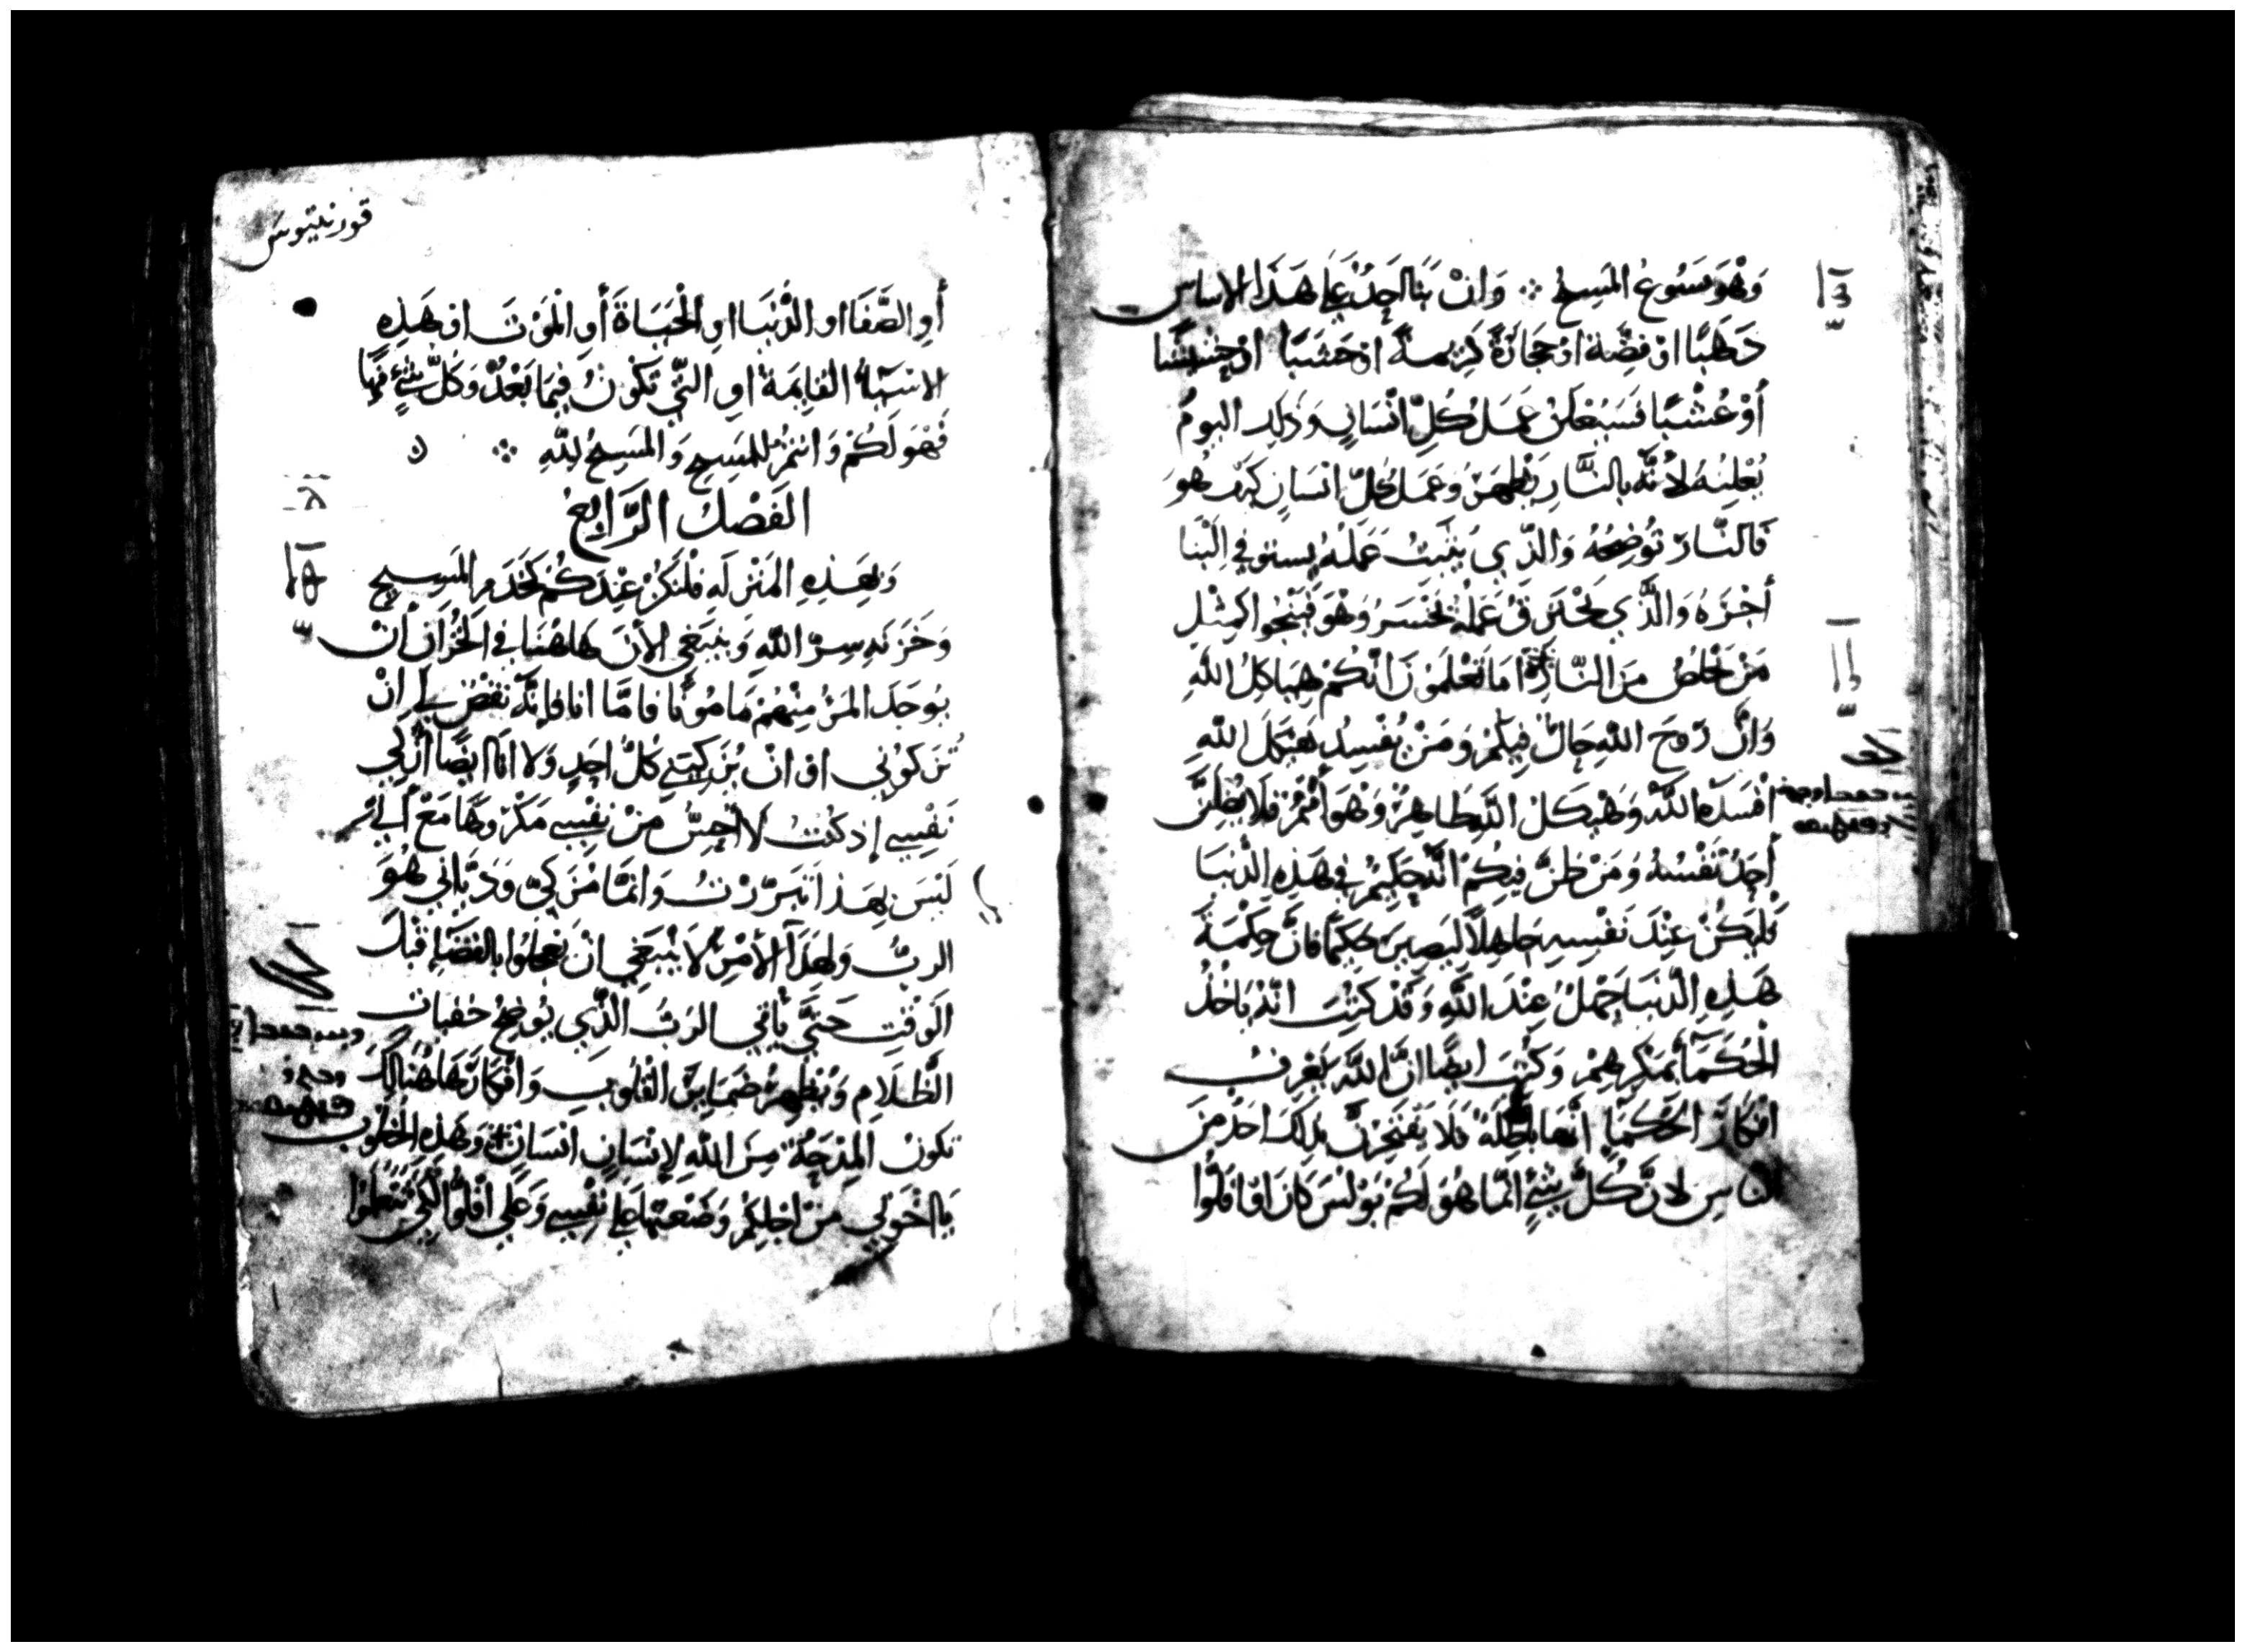 وَهْوَ يَسُوعُ المَسِيحُ ⁘ وَانْ بَنَا اَحَدٌ عَلَى هَذَا الاساس
دَهَبًا اوْ فِضَّة اوْ حِجَارَةً كَرِيمةً اوْ خَشَبًا اوْ حَشِيشًا
أوْ عُشْبًا فَسَيُعْلَنُ عَمَلُ كُلِّ انْسَانٍ وَذلِكَ اليومُ
يُعْلِنُهُ لأنَّه بالنَّارِ يَظْهَرُ وَعَمَلُ كُلّ انسَانٍ كَيْفَ هُوَ
فَالنَّارُ تُوَضِحُهُ وَالذِّي يَثْبُتُ عَمَلهُ يستوفي البْنَا
أجْرَهُ وَالَّذِي يَحْتَرِقُ عَمَلُهُ يَخْسَرُ وَهْوَ فَيَنْجُوا كَمِثْلِ
مَنْ يَخْلصُ مِنَ النَّارِ امَا تَعْلَمُونَ انَّكُمْ هَيَاكِلُ اللَّهِ
وَانَّ رُوحَ اللهِ حَالٌ فِيكُمْ وَمَنْ يُفْسِدُ هَيْكَلَ اللَّهِ
افْسَدَهُ اللَّهُ وَهَيكَلُ اللَّهِ طَاهِرٌ وَهْوَ أنْتُمْ فَلَا يُضِلَّنَّ
أحَدٌ نَفْسَهُ وَمَنْ ظنَّ فِيكُمْ انَّه حَكِيمٌ في هَذِهِ الدُّنيَا
فَلْيَكُنْ عِنْدَ نَفْسِهِ جَاهِلاً لِيَصِيرَ حَكِيمًا فَانَّ حِكْمَةَ
هَذِهِ الدُّنيَا جَهْلٌ عِنْدَ اللَّهِ وَقَدْ كُتِبَ انَّهُ يَاخُذُ
الْحُكَمَآ بمَكْرِهِمْ وَكُتِبَ ايضًا انَّ اللَّهَ يَعْرِفُ
افْكَارَ الحُكَمَا أنَّها بَاطِلَةٌ فَلَا يَفْتَخِرَنَّ بِذَلِكَ احَدٌ مِنَ
النَّاسِ لانَّ كُلَّ شَيْءٍ انَّما هُوَ لَكُمْ بَوْلُسَ كَانَ اوْ افَلُّوا
قورنتيوس
أوِ الصَّفَا او الدُّنيَا اوِ الْحَيَاةَ أوِ الْمَوْتَ اوْ هَذِهِ
الاشيَآءُ القَايِمَةُ اوِ التِّي تَكُونُ فِيمَا بَعْدُ وَكُلُّ شَيْءٍ مِنْهَا
فَهْوَ لَكُمْ وَانتُمْ للمَسِيحِ وَالمَسِيحُ لِلَّهِ ⁘
الفَصْلُ الرَّابِعُ
وَبِهَذِهِ المَنْزِلَهِ فلْنَكُنْ عِنْدَكُمْ كَخَدَمِ المَسِيحِ
وَخَزَنَهِ سِرِّ اللَّهِ وَيَنبَغِي الأنَ هَاهُنَا في الْخُزَّانِ أنْ
يُوجَدَ المَرْ مِنْهُمْ مَامُونًا فامَّا انا فإنَّهُ نَقْصٌ بي انْ
تُزَكُّونِي اوْ انْ يُزَكِّيَنِي كُلُّ احَدٍ وَلا انَا ايضًا أُزَكِّي
نَفْسِي إذ كُنْتُ لَا أحِسُّ مِنْ نفْسِي مَكْرُوهًا مَعْ أنِّي
لَيْسَ بِهَذا تَبَرَّرْتُ وَانمَّا مُزَكِّيَّ وَدَيَّاني هُوَ
الربُّ وَلِهَذَا الأمْرِ لَا يَنْبَغِي انْ تَعجَلُوا بالقضَاءِ قَبْلَ
الَوَقْتِ حَتَّى يَأتي الرَبُّ الذِّي يُوضِحُ خفيَاتِ
الظَّلَامِ وَيُظْهِرُ ضَمَايِرَ القُلُوبِ وَأفْكَارَهَا هُنَالِكَ
تكونُ المِدْحَةُ مِنَ اللهِ لِإنْسَانٍ انْسَانٍ وَهَذِهِ الخُطُوبُ
يَا اخْوَتي مِنْ اجْلِكُمْ وَضَعْتُهَا عَلَى نَفْسِي وَعَلَى افَلُّوا لِكَي تَتَعلَّمُوا